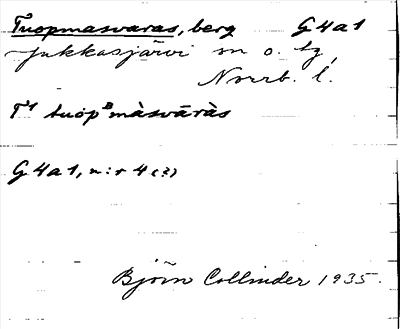 Tuopmasvaras, berg G4a1
Jukkasjärvi sn o. tg,
Norrb. l.
tuopᴮmàsvāràs
G4a1, n:r 4 (?)
Björn Collinder 1935.